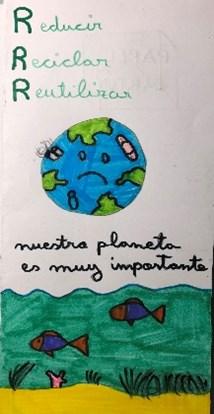 Reducir
Reciclar
Reutilizar
nuestro planeta
es muy importante